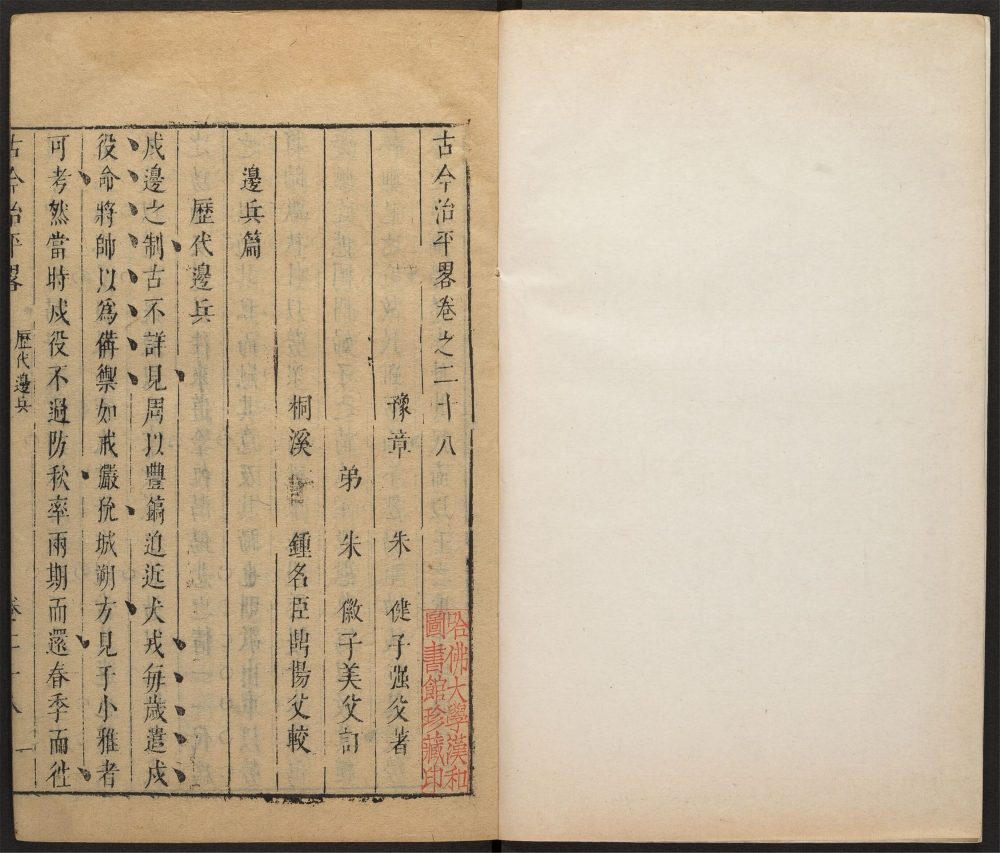 古今治平畧卷之二十八
豫章 朱 健子强父著
弟 朱 徽子美父訂
桐溪 鍾名臣鼎楊父較
邊兵篇
歷代邊兵
戍邊之制古不詳見周以豐鎬迫近犬戎每歲遣戍
役命將帥以為備禦如戒嚴狁城朔方見于小雅者
可考然當時戍役不過防秋率兩期而還春季而徃
古今治平畧 歷代邊兵 卷二十八 一
哈佛大學漢和
圖書館珍藏印